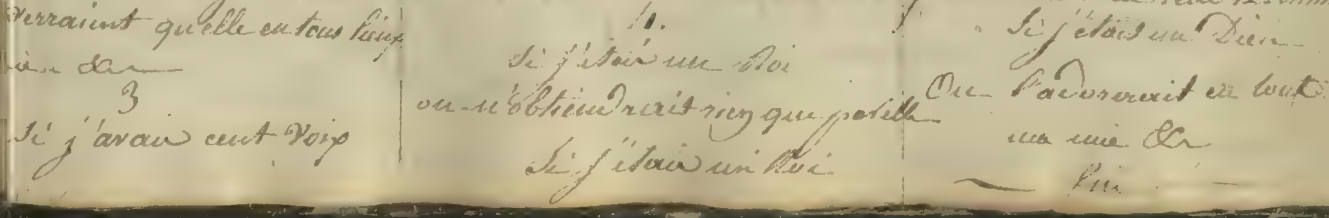 verraient qu'elle en tous lieux
&c
3
Si j'avais cent Voix
4.
Si j'étais un Roi
on n'obtiendrait rien que par elle
Si j'étais un Roi
Si j'étais un Dieu
On l'adorerait en tout
ma mie &c
fin